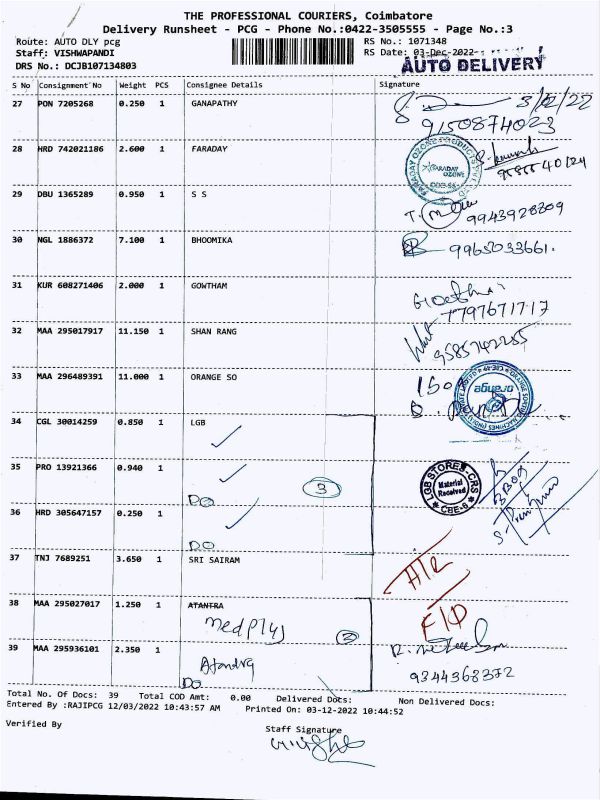 THE PROFESSIONAL COURIERS, Coimbatore
Delivery Runsheet - PCG - Phone No.:0422-3505555 - Page No.:3
Route: AUTO DLY pcg RS No.: 1071348
Staff: VISHWAPANDI RS Date: 03-Dec-2022
DRS No.: DCJB107134803 AUTO DELIVERY
S No Consignment No Weight PCS Consignee Details Signature
27 PON 7205268 0.250 1 GANAPATHY 3/12/22
9150874023
28 HRD 742021186 2.600 1 FARADAY
FARADAY OZONE
29 DBU 1365289 0.950 1 S S
9943928809
30 NGL 1886372 7.100 1 BHOOMIKA 9965033661.
31 KUR 608271406 2.000 1 GOWTHAM
7797671717
32 MAA 295017917 11.150 1 SHAN RANG
9585742255
33 MAA 296489391 11.000 1 ORANGE SO 150
orange
34 CGL 30014259 0.850 1 LGB
35 PRO 13921366 0.940 1
LGB STORES-CRS
Material
Received
CBE-6
DO 3
36 HRD 305647157 0.250 1
DO
37 TNJ 7689251 3.650 1 SRI SAIRAM
38 MAA 295027017 1.250 1 ATANTRA
Medplus 2
39 MAA 295936101 2.350 1
9344368372
DO
Total No. Of Docs: 39 Total COD Amt: 0.00 Delivered Docs: Non Delivered Docs:
Entered By :RAJIPCG 12/03/2022 10:43:57 AM Printed On: 03-12-2022 10:44:52
Verified By Staff Signature